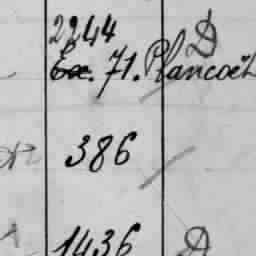 2244 D
Ex. 71. Plancoët
386
1436 D